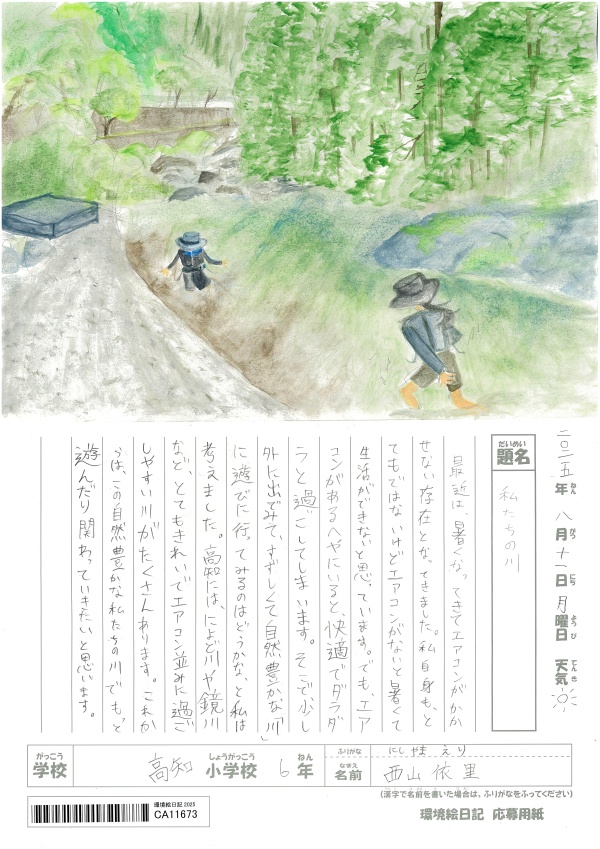 二〇二五年ねん 八月がつ 十一日にち 月曜日ようび 天気てんき
だいめい
題名
私たちの川
最近は、暑くなってきてエアコンがかか
せない存在となってきました。私自身も、と
てもではないけどエアコンがないと暑くて
生活ができないと思っています。でも、エア
コンがあるへやにいると、快適でダラダ
ラと過ごしてしまいます。そこで少し
外に出てみて、すずしくて自然豊かな「川」
に遊びに行ってみるのはどうかな、と私は
考えました。高知には、によど川や鏡川
など、とてもきれいでエアコン並みに過ご
しやすい川がたくさんあります。これか
らは、この自然豊かな私たちの川でもっと
遊んだり関わっていきたいと思います。
がっこう しょうがっこう ねん ふりがな にし やま えり
学校 高知 小学校 6年 なまえ 名前 西山 依里
(漢字で名前を書いた場合は、ふりがなをふってください)
環境絵日記 2025
CA11673
環境絵日記 応募用紙